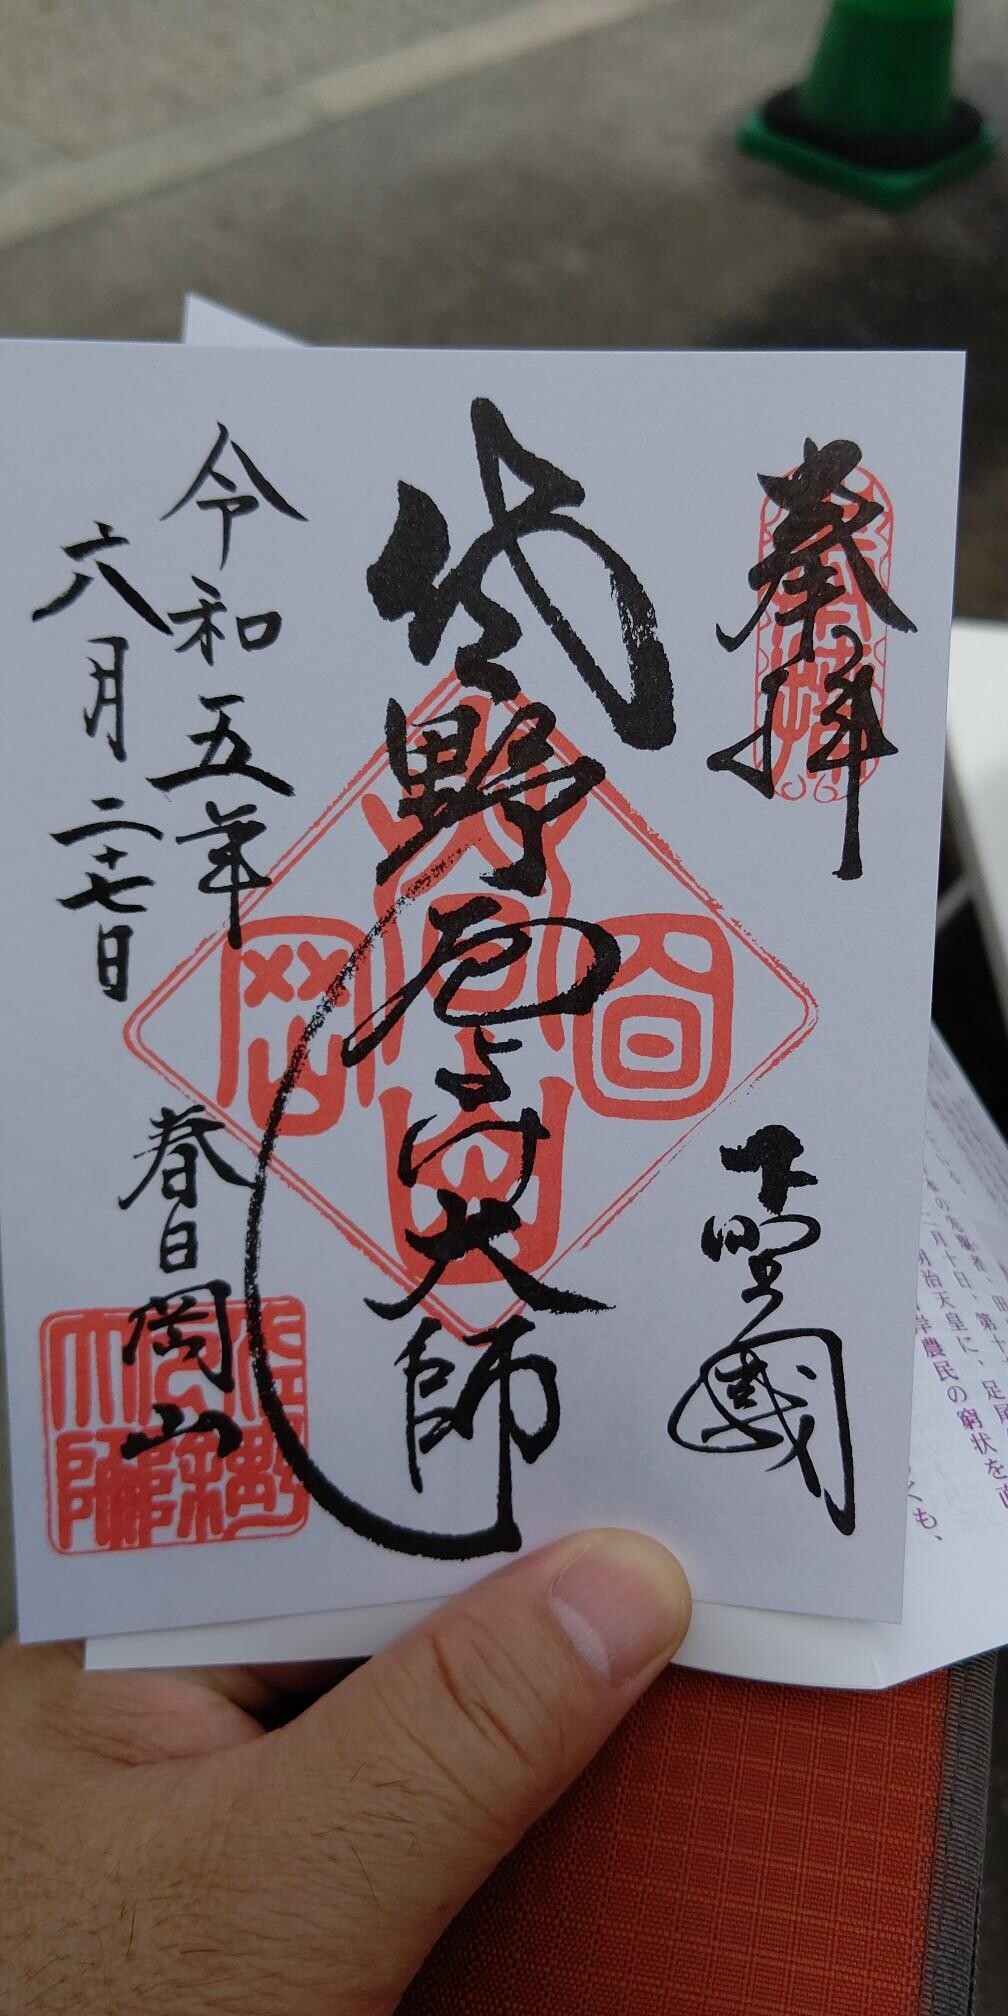 奉拝
下野國
佐野厄よけ大師
令和五年
六月二十七日
春日岡山
佐野
厄除
大師
月十日、第十
明治天皇に、足尾
岸農民の窮状を
くも、